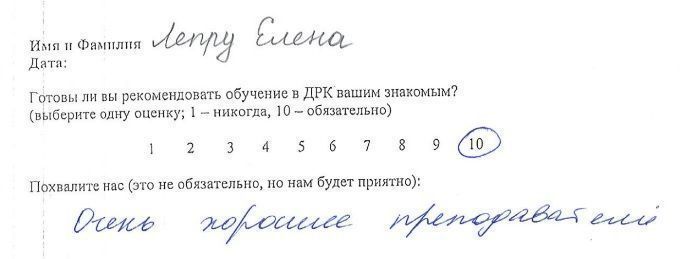 Имя и Фамилия Лепру Елена
Дата:
Готовы ли вы рекомендовать обучение в ДРК вашим знакомым?
(выберите одну оценку; 1 – никогда, 10 – обязательно)
1 2 3 4 5 6 7 8 9 10
Похвалите нас (это не обязательно, но нам будет приятно):
Очень хорошие преподаватели